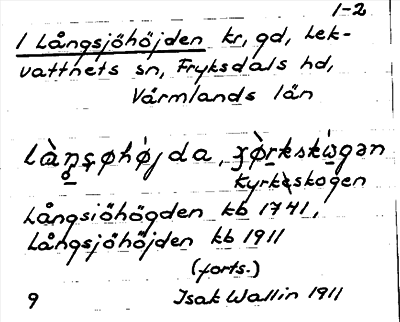 1-2
1 Långsjöhöjden kr, gd, Lek-
vattnets sn, Fryksdals hd,
Värmlands län
Kyrkeskogen
Långsiöhögden kb 1741,
Långsjöhöjden kb 1911
(forts.)
9 Isak Wallin 1911